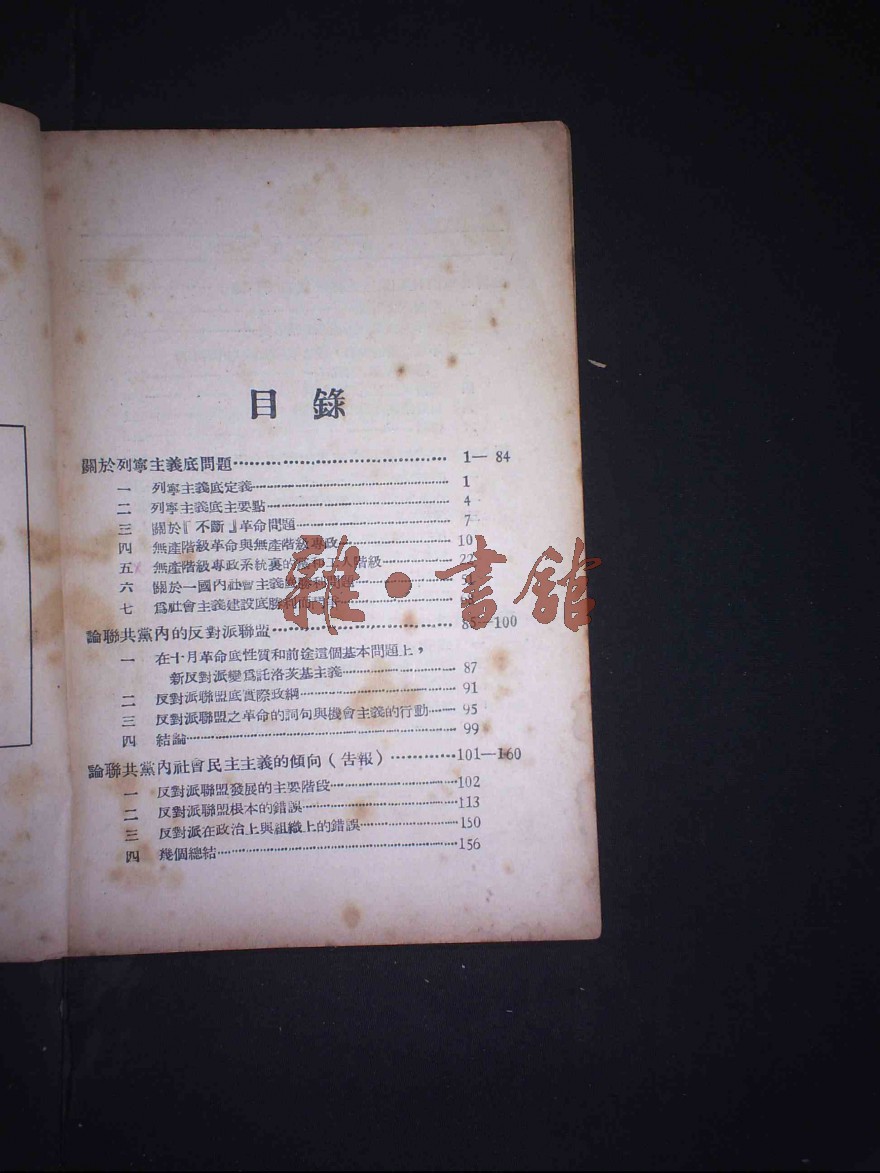 目錄
關於列寧主義底問題 1—84
一 列寧主義底定義 1
二 列寧主義底主要點 4
三 關於『不斷』革命問題 7
四 無產階級革命與無產階級專政 10
五 無產階級專政系統裏的 工人階級 22
六 關於一國內社會主義 勝利問題 51
七 爲社會主義建設底勝利而
論聯共黨內的反對派聯盟 85—100
一 在十月革命底性質和前途這個基本問題上，
新反對派變爲託洛茨基主義 87
二 反對派聯盟底實際政綱 91
三 反對派聯盟之革命的詞句與機會主義的行動 95
四 結論 99
論聯共黨內社會民主主義的傾向（告報） 101—160
一 反對派聯盟發展的主要階段 102
二 反對派聯盟根本的錯誤 113
三 反對派在政治上與組織上的錯誤 150
四 幾個總結 156
雜·書館